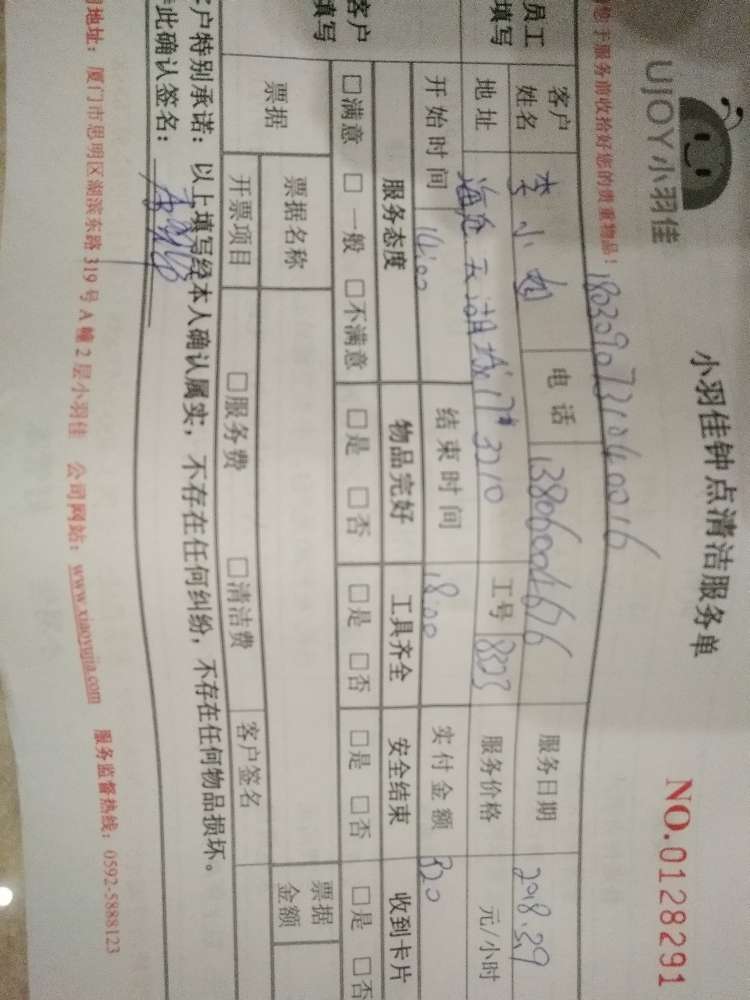 UJOY小羽佳
小羽佳钟点清洁服务单
NO.0128291
您于服务前收拾好您的贵重物品！
1803090731040016
员工
填写
客户
姓名
李小姐
电话
13806004676
服务日期
2018.3.9
地址
3210
工号
8303
服务价格
元/小时
开始时间
14:00
结束时间
18:00
实付金额
820
客户
填写
服务态度
物品完好
工具齐全
安全结束
收到卡片
□满意 □一般 □不满意
□是 □否
□是 □否
□是 □否
□是 □否
票据
票据名称
票据
金额
开票项目
□服务费 □清洁费
客户签名
客户特别承诺：以上填写经本人确认属实，不存在任何纠纷，不存在任何物品损坏。
此确认签名：
地址：厦门市思明区湖滨东路319号A幢2层小羽佳 公司网站：www.xiaoyujia.com 服务监督热线：0592-5888123